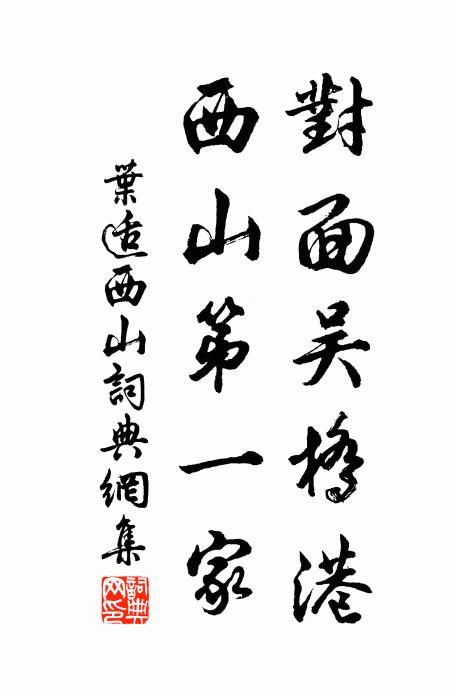 對面吴橋港
西山第一家
葉适西山詞典網集
詞典网印